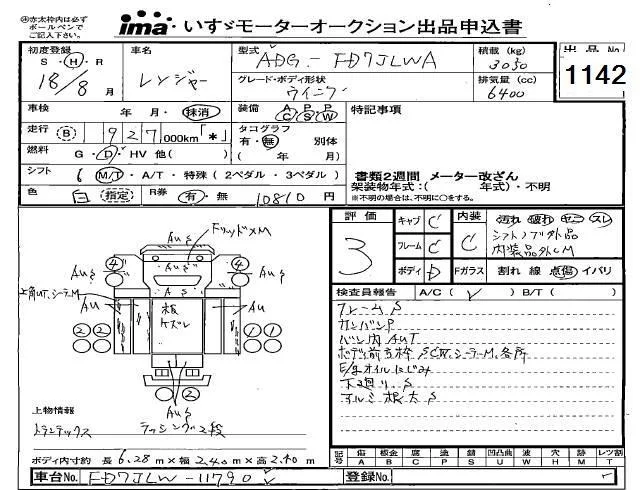 ㊟赤太枠内は必ず
ボールペンで
ご記入下さい。
ima いすゞモーターオークション出品申込書
初度登録 車名 型式 積載 (kg) 出品No
S・H・R レンジャー ADG-FD7JLWA 3050 1142
18/8 月 グレード・ボディ形状 排気量 (cc)
ウイング 6400
車検 年 月・抹消 装備 A/C P/S P/W 特記事項
走行 B 927,000km「*」 タコグラフ
有・無 別体
燃料 G・D・HV 他( ) ( 年 月)
シフト 6 M/T・A/T・特殊(2ペダル・3ペダル) 書類2週間 メーター改ざん
架装物年式:( 年式)・不明
色 白 指定 R券 有・無 10810 円 ※不明の場合は、不明に○をする。
評価 キャブ C 内装 汚れ 破れ ヤニ スレ
3 フレーム C C シフトノブ外品
内装品外しM
ボディ D Fガラス 割れ 線 点傷 イバリ
検査員報告 A/C( ✓ ) B/T( )
フレームS
カンバンP
バン内AUT
ボディ前立枠SCW.シーラーM.各所
E/gオイルにじみ
下廻り.S
アルミ根太S
AUS
FリッドメM
④ ④
AUS AUS
A S
上角UT.シーラーM
AU 板 AU
ケズレ
② ② ① ①
AUS
上物情報
トランテックス ラッシング2段
ボディ内寸約 長 6.28 m × 幅 2.40 m × 高 2.40 m
記号 傷 A 板金 B 腐 C 塗 P 錆 S 凹凸曲 U 波 W 穴 H 跡 M レツ割 T
車台No. FD7JLW-11790 登録No.